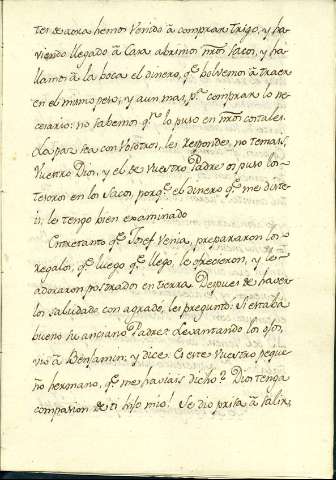 tes de aora hemos venido â comprar trigo, y ha-
viendo llegado â Casa abrimos nr̃os sacos, y ha-
llamos â la boca el dinero, q.e bolvemos â traer
en el mismo peso, y aun mas, p.a comprar lo ne-
cesario: no sabemos q.n lo puso en nr̃os costales.
La paz sea con vosotros, les responde, no temais,
vuestro Dios, y el de vuestro Padre os puso los
tesoros en los sacos, porq.e el dinero q.e me diste-
is, le tengo bien examinado
Entretanto q.e Josef venia, prepararon los
regalos, q.e luego q.e llego, le ofrecieron, y le
adoraron postrados en tierra. Despues de haver-
los saludado con agrado, les pregunto: Si estaba
bueno su anciano Padre? Levantando los ojos,
vio â Benjamin, y dice: Es este vuestro peque-
ño hermano, q.e me haviais dicho? Dios tenga
compasion de ti hijo mio! Se dio prisa â salir,